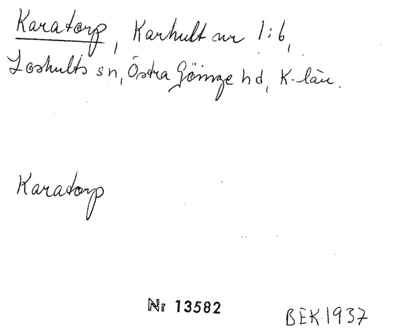 Karatorp, Karhult nr 1:6,
Loshults sn, Östra Göinge hd, K-län.
Karatorp
Nr 13582
BEK1937